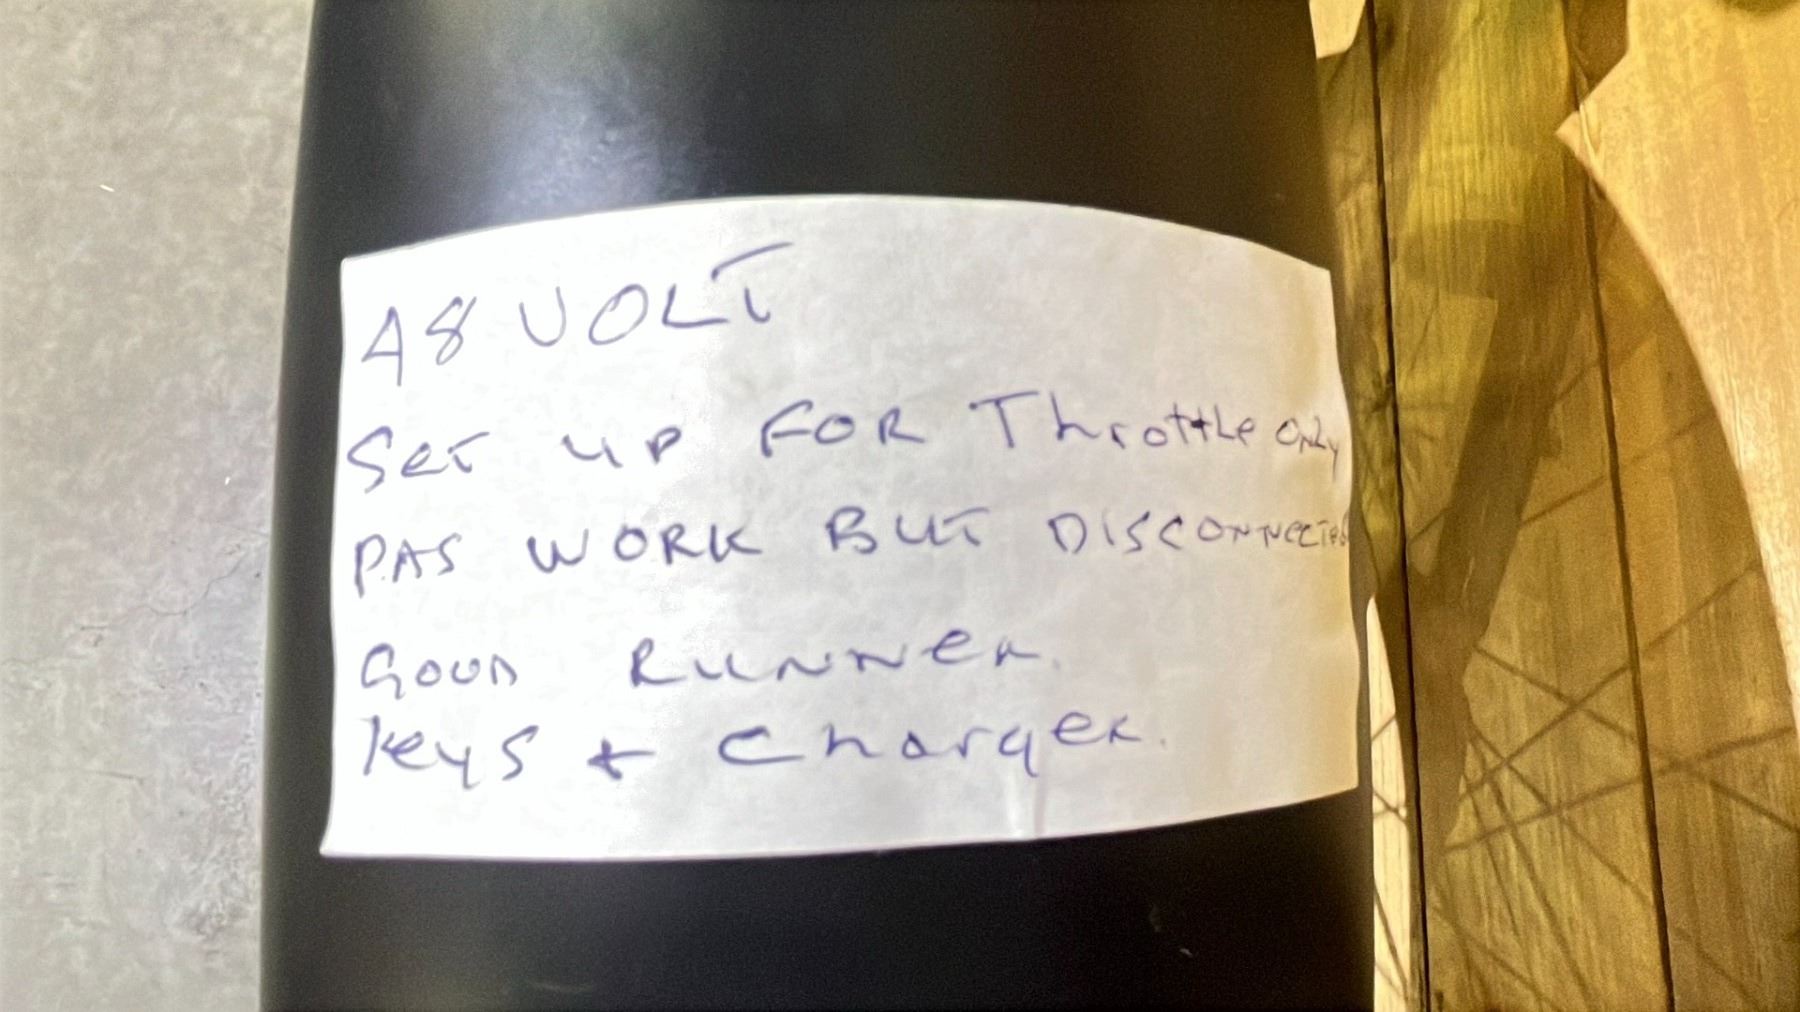 48 VOLT
SET UP FOR Throttle Only
PAS WORK BUT DISCONNECTED
GOOD RUNNER.
Keys + Charger.